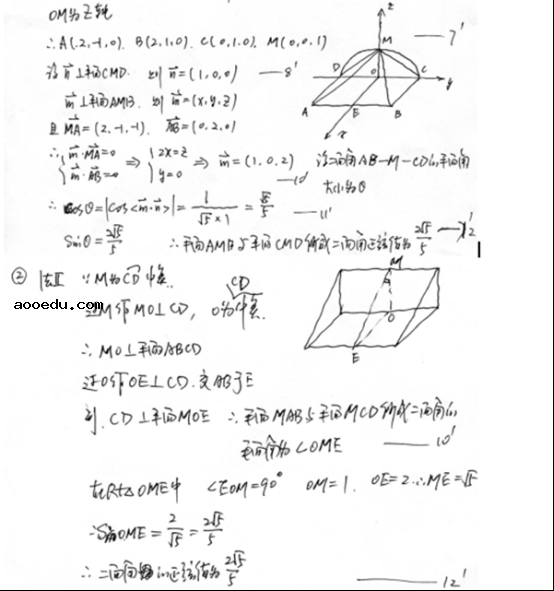 OM为Z轴
∴A(2,-1,0). B(2,1,0). C(0,1,0). M(0,0,1) ——7'
设 n⃗⊥平面CMD. 则 n⃗=(1,0,0) ——8'
m⃗⊥平面AMB. 则 m⃗=(x,y,z)
且 MA⃗=(2,-1,-1). AB⃗=(0,2,0)
∴{m⃗·MA⃗=0 m⃗·AB⃗=0 ⇒ {2x=z y=0 ⇒ m⃗=(1,0,2) 设二面角AB-M-CD的平面角
——10' 大小为θ
∴cosθ=|cos<m⃗·n⃗>|=1/(√5×1)=√5/5 ——11'
Sinθ=2√5/5 ∴平面AMB与平面CMD所成二面角正弦值为2√5/5 ——12'
z
M
D O C y
A E B
x
② 法II ∵M为CD中点.
aooedu.com
过M作MO⊥CD, O为CD中点.
∴MO⊥平面ABCD
过O作OE⊥CD.交AB于E
则.CD⊥平面MOE ∴平面MAB与平面MCD所成二面角的
平面角为∠OME ——10'
M
O
E
在Rt△OME中 ∠EOM=90° OM=1. OE=2.∴ME=√5
∴Sin∠OME=2/√5=2√5/5
∴二面角的正弦值为2√5/5 ——12'